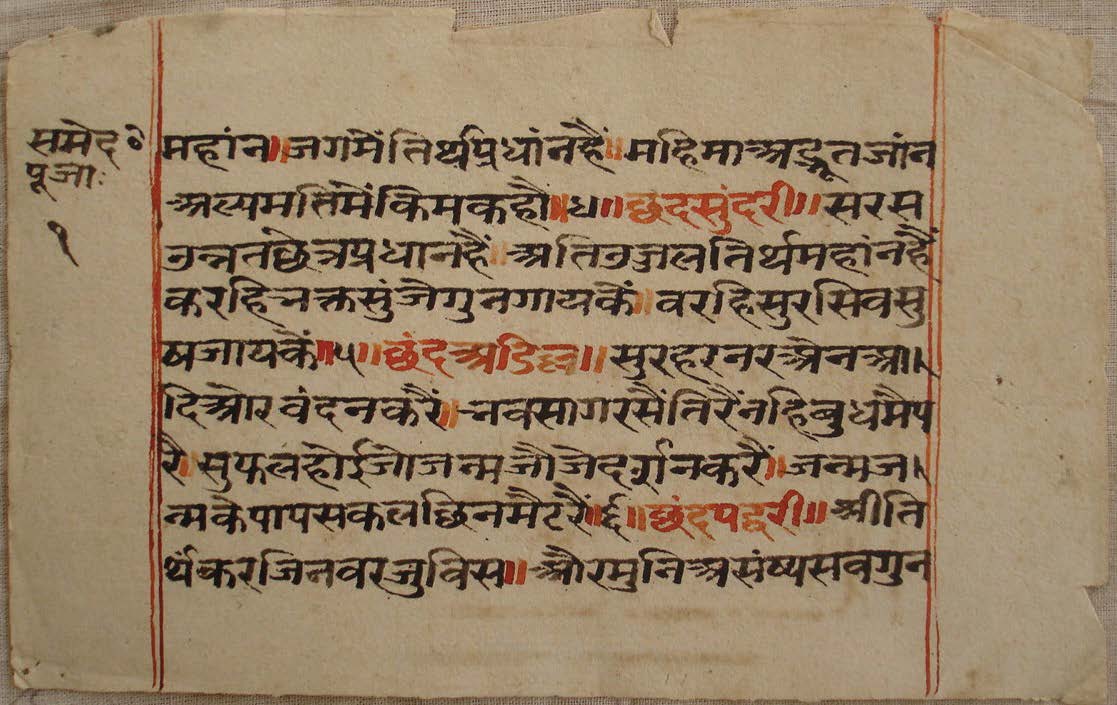 समेद॰
पूजाः
१
महांन॥जगमैंतिर्थप्रधांनहैं॥महिमाअद्भूतजांन
अल्पमतिमैंकिमकहौं॥४॥छंदसुंदरी॥सरस
उन्नतछेत्रप्रधानहैं॥अतिउजुलतिर्थमहांनहैं
करहिभक्तसुंजेगुनगायकैं॥वरहिसुरसिवसु
षजायकैं॥५॥छंदअडिल्ल॥सुरहरनरअैनआ।
दिओरवंदनकरैं॥भवसागरसैंतिरैंनहिबुधमैप
रै॥सुफलहोईजोजन्मजौजेदर्शनकरैं॥जन्मज।
न्मकेपापसकलछिनमैटरैं॥६॥छंदपद्धरी॥श्रीति
र्थंकरजिनवरजुविस॥औरमुनिअसंष्यसवगुन